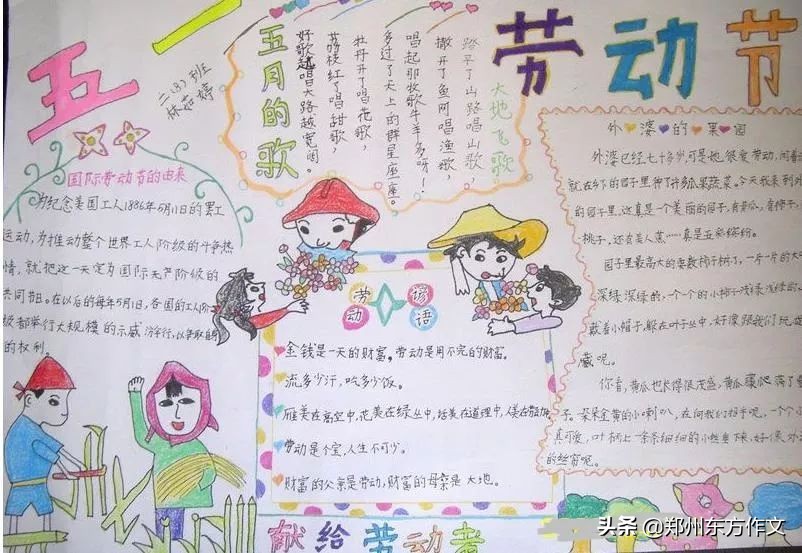 五一
劳动节
二.(3)班
林茹婷
五月的歌
大地飞歌
踏平了山路唱山歌,
撒开了鱼网唱渔歌,
唱起那牧歌牛羊多呀!
多过了天上的群星座座。
牡丹开了唱花歌,
荔枝红了唱甜歌,
好歌越唱大路越宽阔。
国际劳动节的由来
为纪念美国工人1886年5月1日的罢工
运动,为推动整个世界工人阶级的斗争热
情,就把这一天定为国际无产阶级的
共同节日。在以后的每年5月1日,各国的工人阶
级都举行大规模的示威游行,以争取自
的权利。
劳动谚语
金钱是一天的财富。劳动是用不完的财富。
流多少汗,吃多少饭。
雁美在高空中,花美在绿丛中,话美在道理中,人美在
劳动是个宝,人生不可少。
财富的父亲是劳动,财富的母亲是大地。
外婆的果园
外婆已经七十多岁,可是她很爱劳动,闲着
就在乡下的园子里种了许多瓜果蔬菜。今天我来到外
的园子里,这真是一个美丽的园子,有黄瓜,有柿子,
桃子,还有美人蕉……真是五彩缤纷。
园子里最高大的要数柿子树了,一片一片的大
深绿深绿的,一个个的小柿子浅绿浅绿的
戴着小帽子,躲在叶子丛中,好像跟我们玩
藏呢。
你看,黄瓜也长得很茂盛,黄瓜藤爬满了
子。朵朵金黄的小喇叭,在向我们招手呢,一个个
真可爱,叶柄上一条条细细的小丝垂下来,好像
的丝窗呢。
献给劳动者
头条 @郑州东方作文